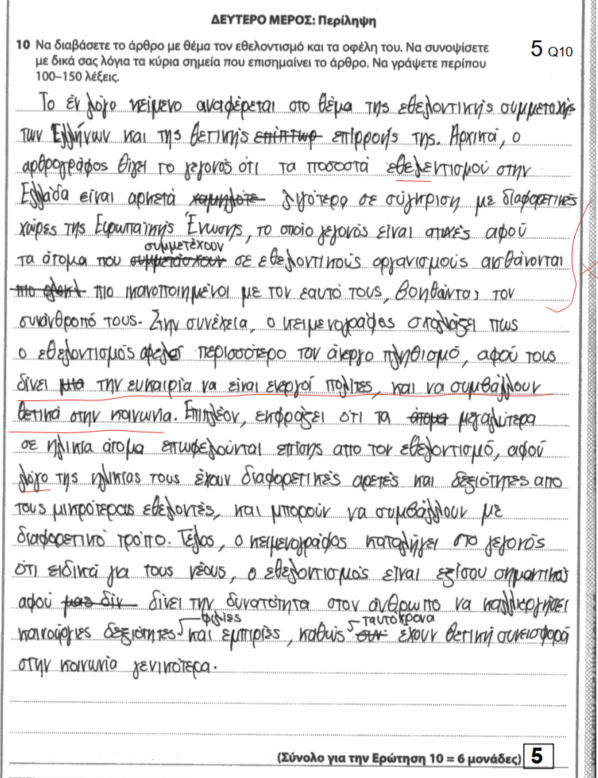 ΔΕΥΤΕΡΟ ΜΕΡΟΣ: Περίληψη
10 Να διαβάσετε το άρθρο με θέμα τον εθελοντισμό και τα οφέλη του. Να συνοψίσετε 5 Q10
με δικά σας λόγια τα κύρια σημεία που επισημαίνει το άρθρο. Να γράψετε περίπου
100–150 λέξεις.
Το εν λόγο κείμενο αναφέρεται στο θέμα της εθελοντικής συμμετοχής
των Ελλήνων και της θετικής επιρροής της. Αρχικά, ο
αρθρογράφος θίγει το γεγονός ότι τα ποσοστά εθελεντισμού στην
Ελλάδα είναι αρκετά χαμηλότε λιγότερο σε σύγκριση με διαφορετικές
χώρες της Ευρωπαϊκής Ένωσης, το οποίο γεγονός είναι αφού
συμμετέχουν
τα άτομα που σε εθελοντικούς οργανισμούς αισθάνονται
πιο ικανοποιημένοι με τον εαυτό τους, βοηθώντας τον
συνάνθροπό τους. Στην συνέχεια, ο κειμενογράφος σχολιάζει πως
ο εθελοντισμός περισσότερο τον άνεργο πληθισμό, αφού τους
δίνει μια την ευκαιρία να είναι ενεργοί πολίτες, και να συμβάλλουν
θετικά στην κοινωνια. Επιπλέον, εκφράζει ότι τα άτομα μεγαλύτερα
σε ηλικια άτομα επωφελούνται επίσης απο τον εθελοντισμό, αφού
λόγο της ηλικιας τους έχουν διαφορετικές αρετές και δεξιότητες απο
τους μικρότερους εθελοντές, και μπορούν να συμβάλλουν με
διαφορετικό τρόπο. Τέλος, ο κειμενογράφος καταλήγει στο γεγονός
ότι ειδικά για τους νέους, ο εθελοντισμός είναι εξίσου σημαντικός
αφού δίνει την δυνατότητα στον άνθρωπο να καλλιεργήσει
φιλίες ταυτόχρονα
καινούργιες δεξιότητες και εμπιρίες, καθώς συν έχουν θετική συνεισφορά
στην κοινωνία γενικότερα.
(Σύνολο για την Ερώτηση 10 = 6 μονάδες) 5